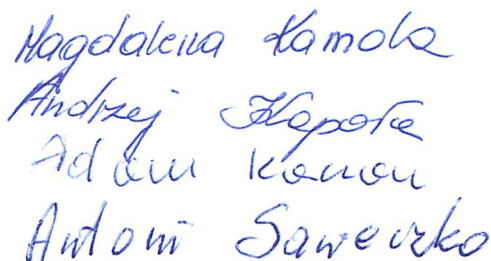 Magdalena Kamola
Andrzej Kapoła
Adam Konon
Antoni Saweczko